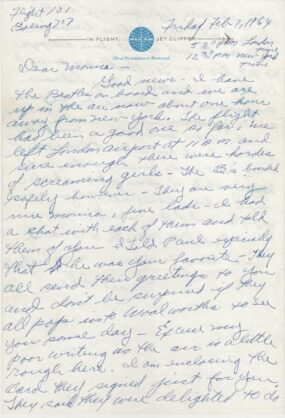 Flight 101
Boeing 707
Friday Feb. 7, 1964
IN FLIGHT... PAN AM JET CLIPPER
5 30 P.M. London time
12 30 P.M. New York time
Dear Monica -
Good news - I have
the Beatles on board and we are
up in the air now about one hour
away from new york. The flight
had been a good one so far, we
left London airport at 11 A M and
sure enough there were hordes
of screaming girls - The B's boarded
safely however - They are very
nice monica, fine lads - I had
a chat with each of them and told
them of you I told Paul especially
that he was your favorite - They
all send their greetings to you
and don't be surprised if they
all pop into Woolworths to see
you some day - Excuse my
poor writing as the air is a little
rough here. I am enclosing the
card they signed just for you.
They said they were delighted to do